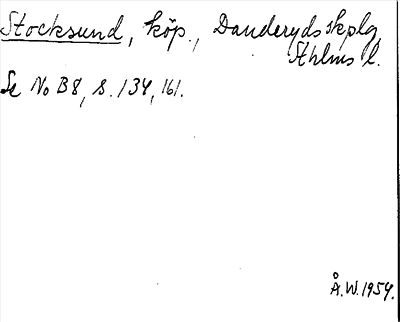 Stocksund, köp., Danderyds skplg,
Sthlms l.
Se No B8, s. 134, 161.
Å.W. 1954.